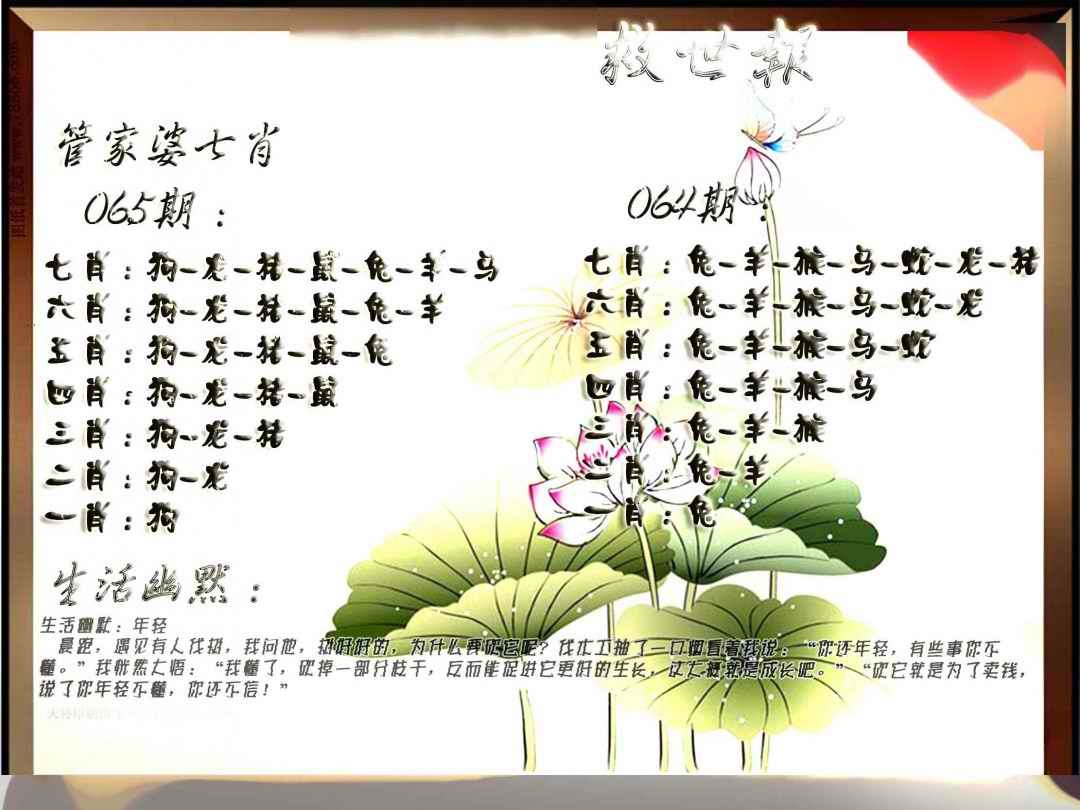 救世報
管家婆七肖
065期：
七肖：狗-龙-猪-鼠-兔-羊-马
六肖：狗-龙-猪-鼠-兔-羊
五肖：狗-龙-猪-鼠-兔
四肖：狗-龙-猪-鼠
三肖：狗-龙-猪
二肖：狗-龙
一肖：狗
064期：
七肖：兔-羊-猴-马-蛇-龙-猪
六肖：兔-羊-猴-马-蛇-龙
五肖：兔-羊-猴-马-蛇
四肖：兔-羊-猴-马
三肖：兔-羊-猴
二肖：兔-羊
一肖：兔
生活幽默：
生活幽默：年轻
晨跑，遇见有人伐树，我问他，树好好的，为什么要砍它呢？伐木工抽了一口烟看着我说：“你还年轻，有些事你不
懂。”我恍然大悟：“我懂了，砍掉一部分枝干，反而能促进它更好的生长，这大概就是成长吧。”“砍它就是为了卖钱，
说了你年轻不懂，你还不信！”